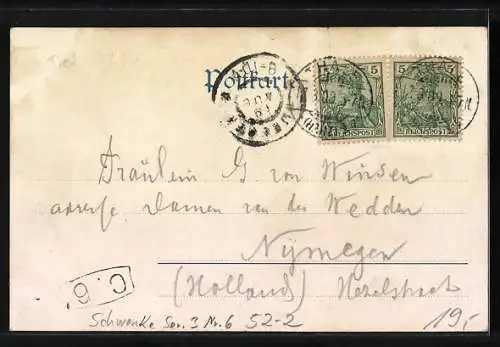 Postkarte
5 5
REICHSPOST REICHSPOST
Fräulein G. von Winsen
adresse Damen van der Wedden
Nymegen
(Holland) Hezelstraat
C. 6
Schwenke Ser. 3 Nr. 6 52-2
19,-